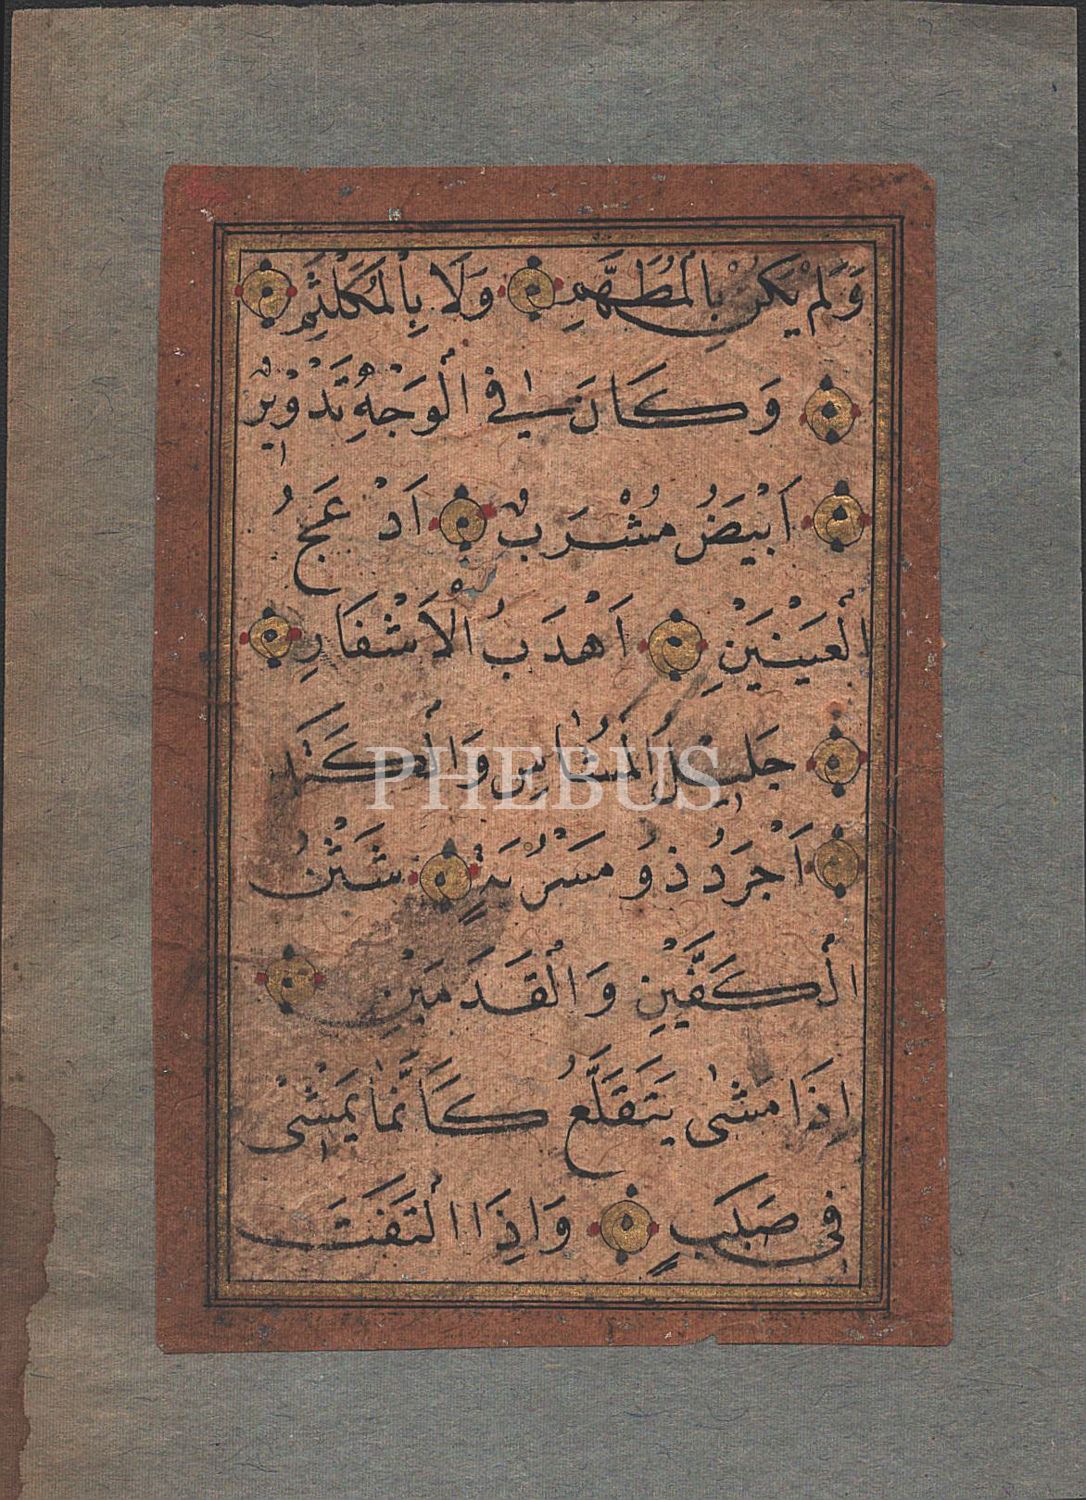 وَلَمْ يَكُنْ بِالْمُطَهَّمِ وَلَا بِالْمُكَلْثَمِ
وَكَانَ فِي الْوَجْهِ تَدْوِيْرٌ
اَبْيَضُ مُشْرَبٌ اَدْعَجُ
الْعَيْنَيْنِ اَهْدَبُ الْاَشْفَارِ
جَلِيْلُ الْمُشَاشِ وَالْكَتَدِ
PHEBUS
اَجْرَدُ ذُو مَسْرُبَةٍ شَثْنُ
الْكَفَّيْنِ وَالْقَدَمَيْنِ
اِذَا مَشٰى يَتَقَلَّعُ كَاَنَّمَا يَمْشٖى
فٖى صَبَبٍ وَاِذَا الْتَفَتَ